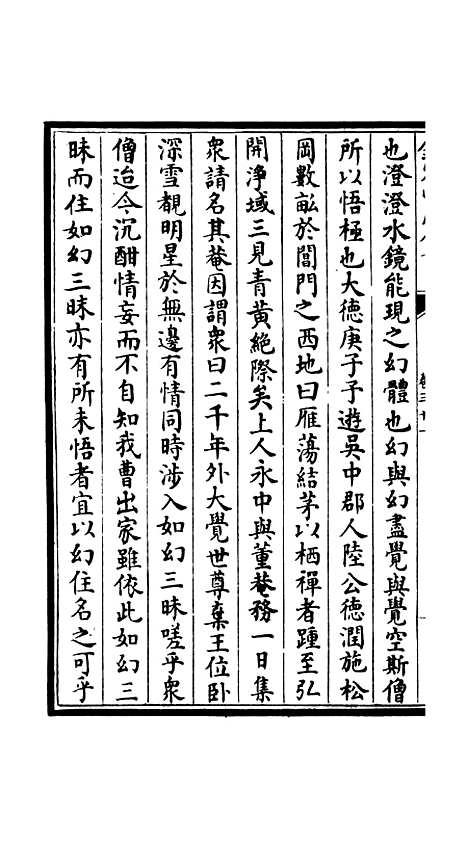 也澄澄水鏡能現之幻體也幻與幻盡覺與覺空斯僧
所以悟極也大德庚子子遊吳中郡人陸公德潤施松
岡數畝於閶門之西地曰雁蕩結茅以栖禪者踵至弘
開淨域三見青黃絶際矣上人永中與董菴務一日集
衆請名其菴因謂衆曰二千年外大覺世尊棄王位卧
深雪覩明星於無邊有情同時涉入如幻三昧嗟乎衆
僧迨今沉酣情妄而不自知我曹出家雖依此如幻三
昧而住如幻三昧亦有所未悟者宜以幻住名之可乎